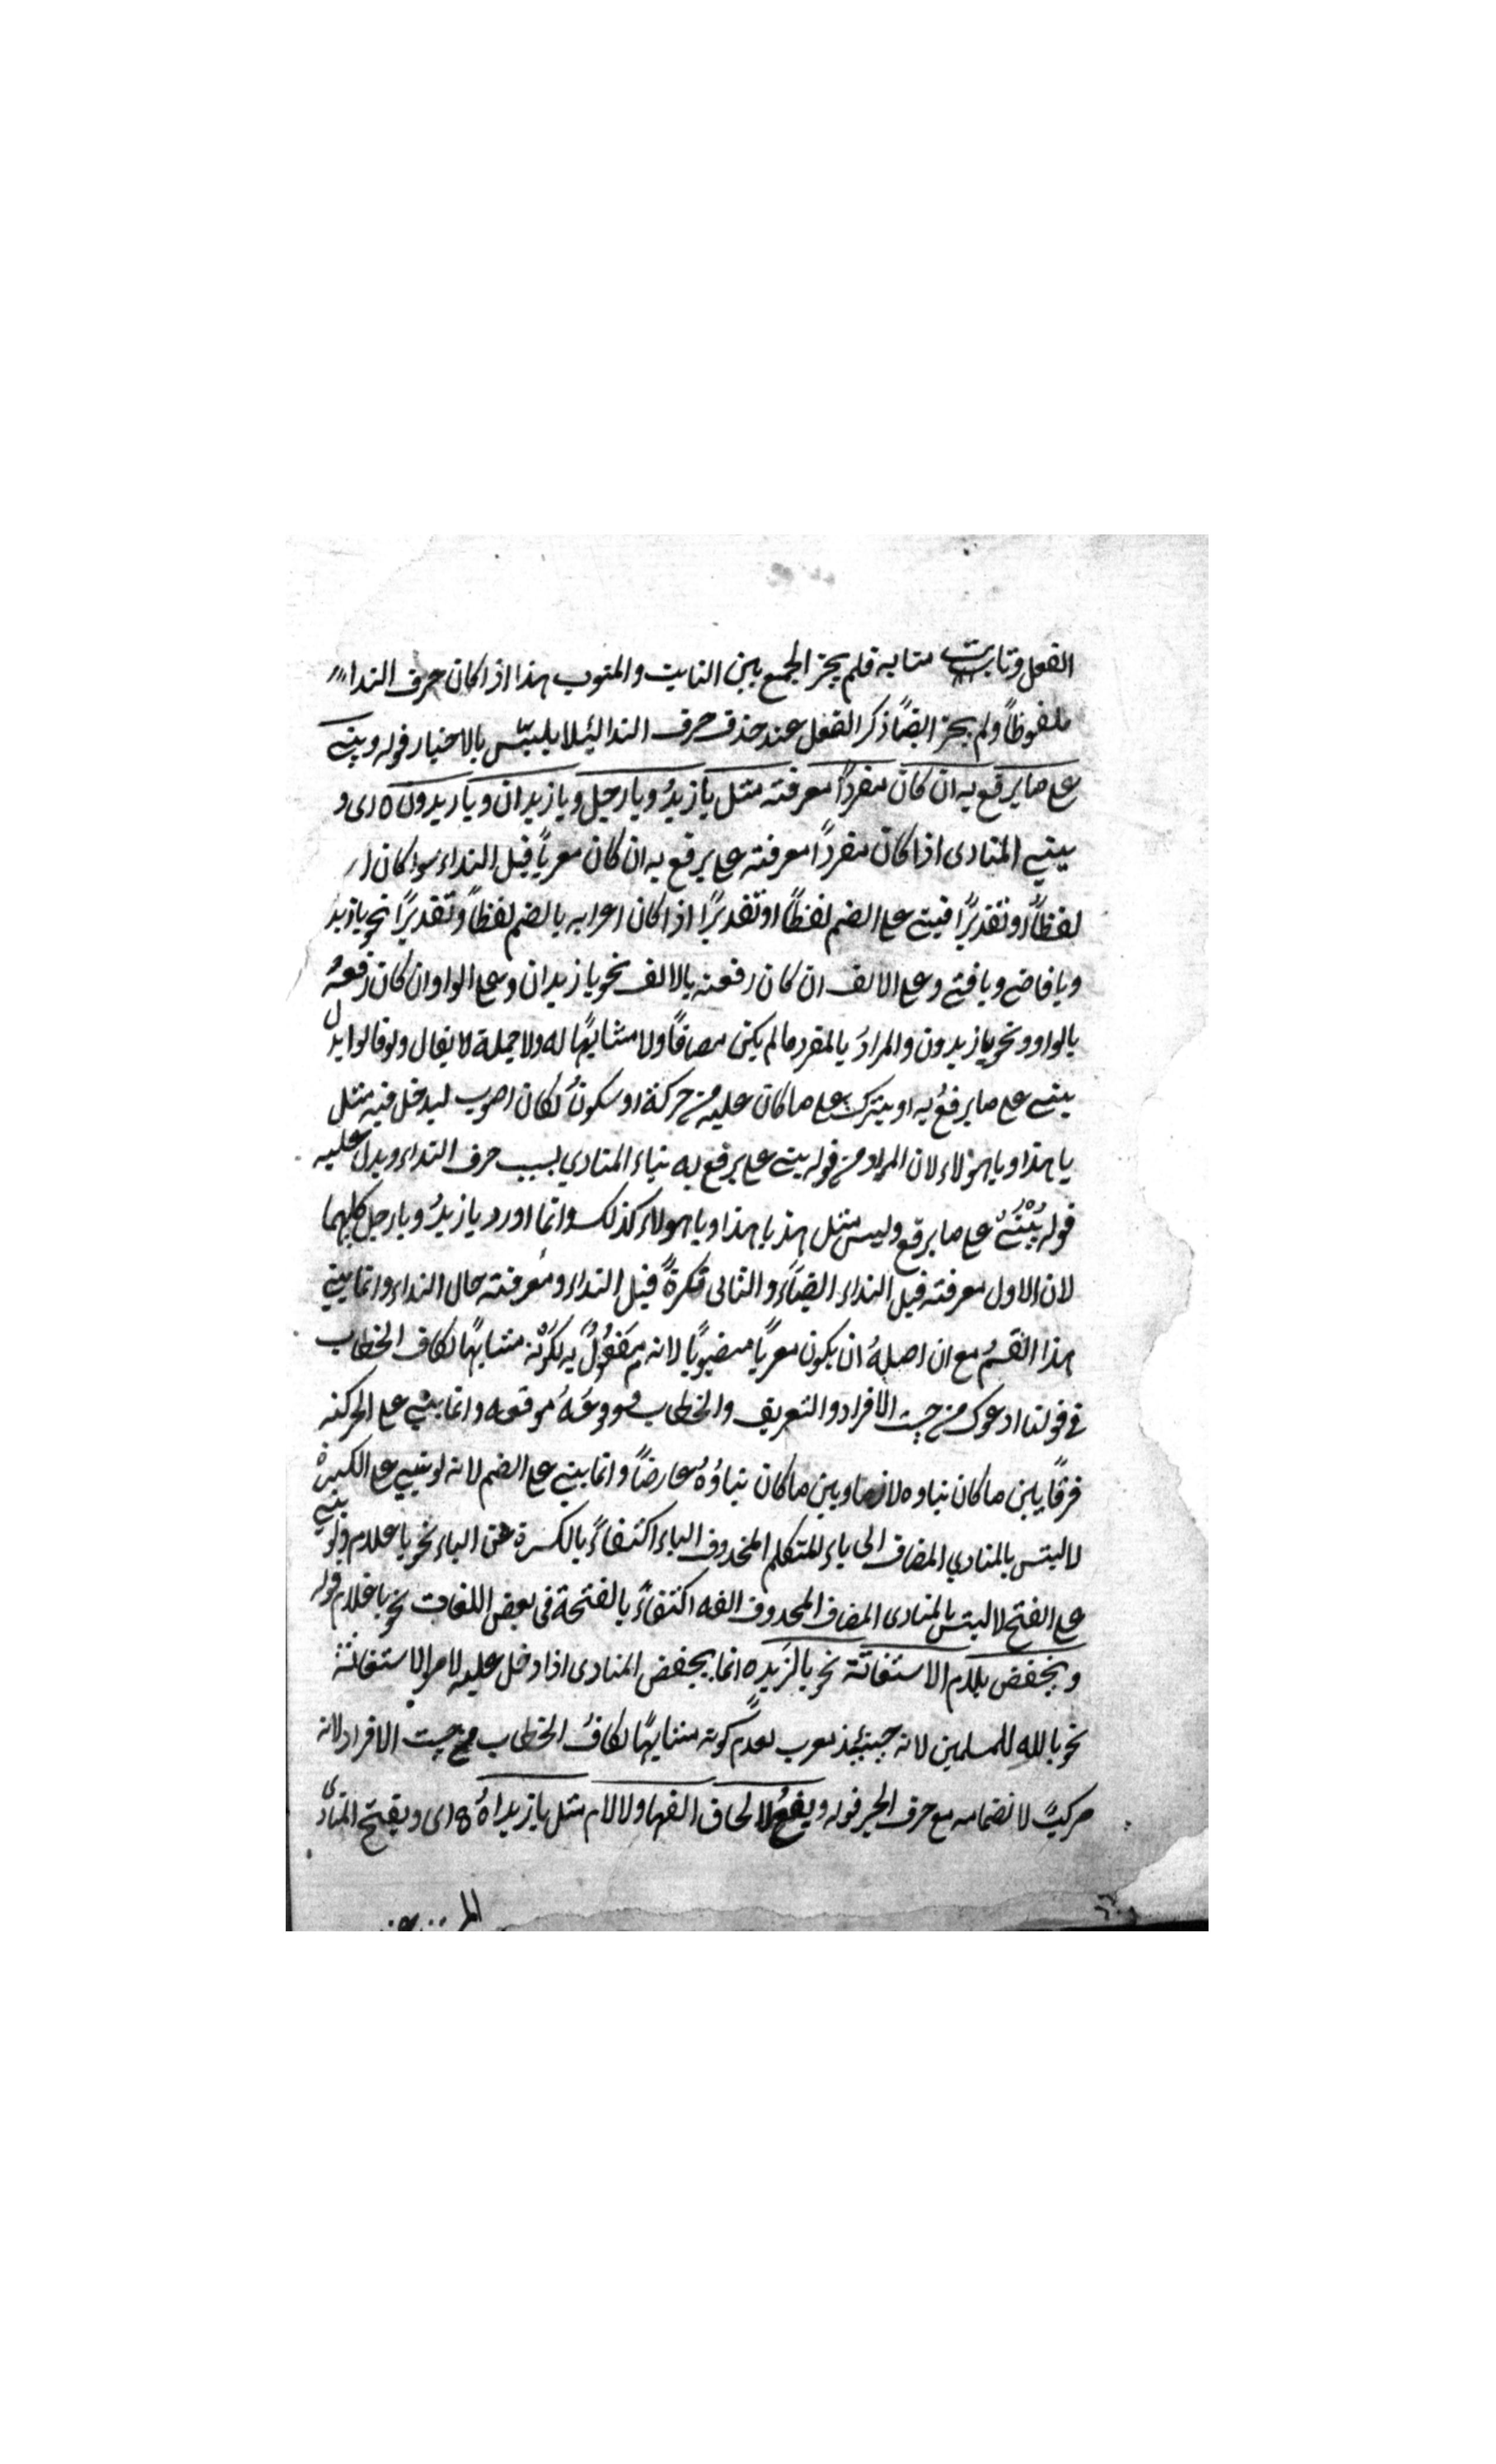 الفعل ونابت منابه فلم يجز الجمع بين النايب والمنوب هذا اذا كان حرف النداء
ملفوظاً ولم يجز ايضاً ذكر الفعل عند حذف حرف النداء لئلا يلتبس بالاخبار قوله ويبنى
على ما يرفع به ان كان مفرداً معرفة مثل يا زيدُ ويا رجل ويا زيدان ويا زيدون ه اى و
يبنى المنادى اذا كان مفرداً معرفة على يرفع به ان كان معرباً قبل النداء سوا كان
لفظاً او تقديرًا فيبنى على الضم لفظاً او تقديرًا اذا كان اعرابه بالضم لفظاً وتقديرًا نحو يا زيد
ويا قاضى ويا فتى وعلى الالف ان كان رفعه بالالف نحو يا زيدان وعلى الواو ان كان رفعهُ
بالواو ونحو يا زيدون والمرادُ بالمفرد ما لم يكن مضافاً ولا مشابهًا له ولا جملة لا يقال ولو قالوا بدل
يبنى على ما يرفعُ به او يترك على ما كان عليه من حركة او سكونٌ لكان اصوب ليدخل فيه مثل
يا هذا ويا هؤلاء لان المراد من قوله يبنى على يرفع به بناء المنادي بسبب حرف النداء ويدل عليه
قوله يُبْنٰى على ما يرفع وليس مثل هذ يا هذا ويا هولاء كذلك وانما اورد يا زيدُ ويا رجل كليهما
لان الاول معرفة قبل النداء ايضاً والثانى نكرةً قبل النداء ومعرفته حال النداء وانما يبنى
هذا القسمُ مع ان اصلهُ ان يكون معرباً منصوبًا لانه مَفعُولٌ به لكونه مشابهًا لكاف الخطاب
فى قولنا ادعوك من حيث الافراد والتعريف والخطاب ووقوعَهُ موقعه وانما يبنى على الحركة
فرقًا بين ما كان بناوه لازما وبين ما كان بناؤهُ عارضاً وانما يبنى على الضم لانه لو بنى على الكسرة
لالتبس بالمنادي المضاف الى ياء المتكلم المحذوف الياء اكتفاءً بالكسرة عن الياء نحو يا غلام ولو بنى
على الفتح لالتبس بالمنادى المضاف المحذوف الفه اكتفاءً بالفتحة فى بعض اللغات نحو يا غلام قوله
ويخفض بلام الاستغاثة نحو يا لزيد ه انما يخفض المنادى اذا دخل عليه لام الاستغاثة
نحو يا لله للمسلمين لانه حينئذ معرب لعدم كونه مشابهًا لكاف الخطاب من حيث الافراد لانه
مركبٌ لانضمامه مع حرف الجر قوله ويفتحُ لالحاق الفها ولا لام مثل يا زيداهُ ه اى ويفتح المنادى